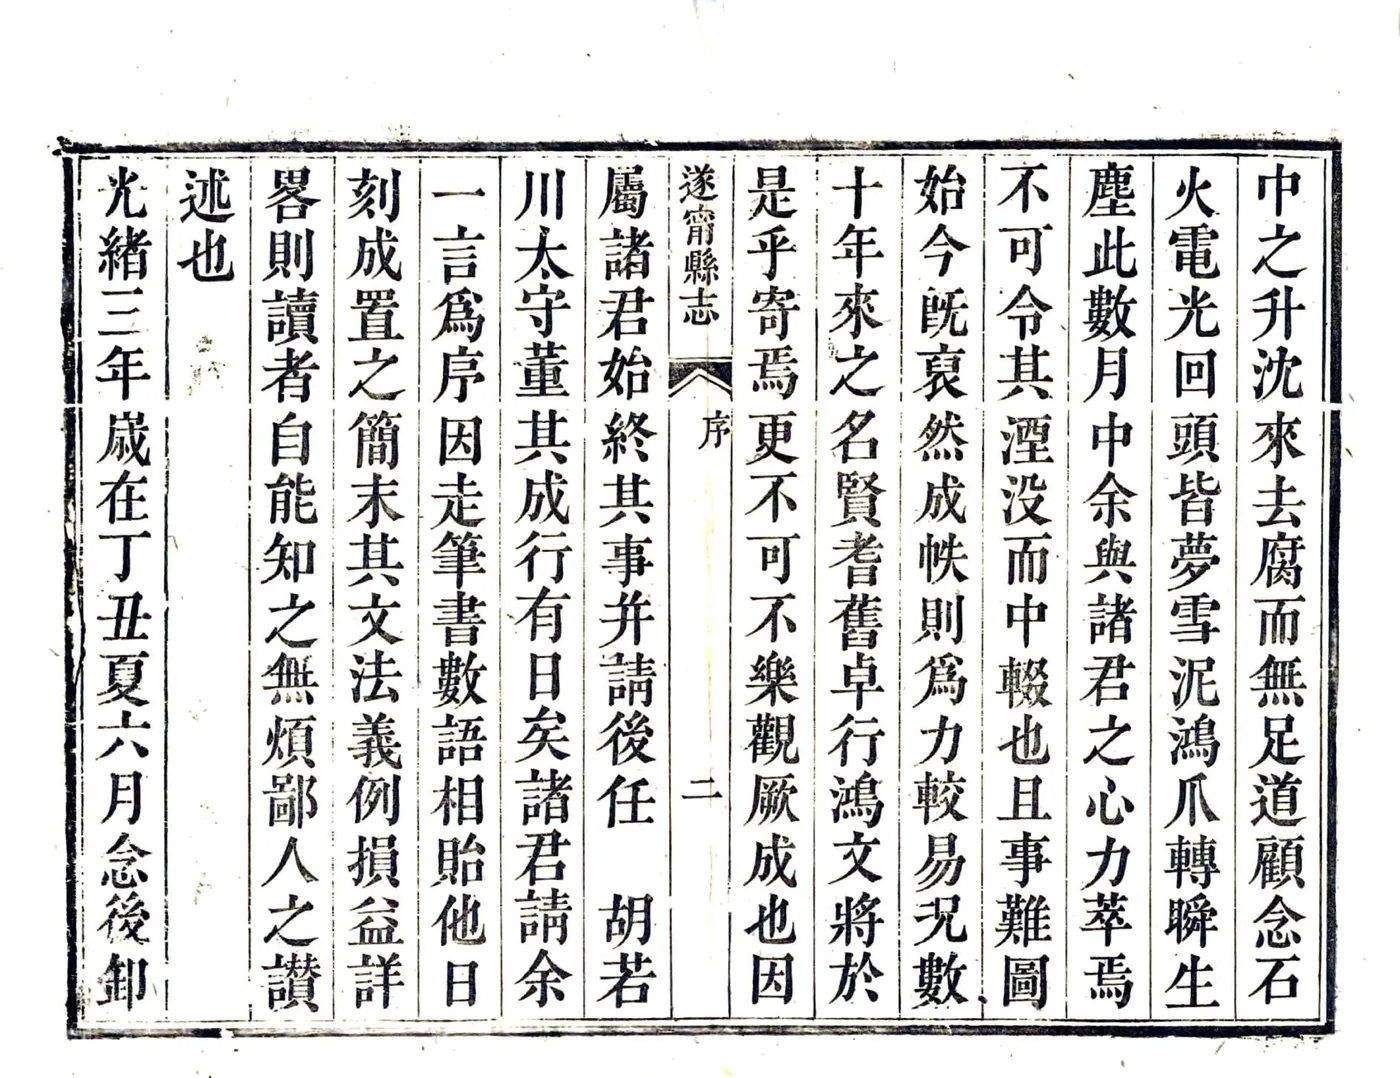 中之升沈來去腐而無足道顧念石
火電光回頭皆夢雪泥鴻爪轉瞬生
塵此數月中余與諸君之心力萃焉
不可令其湮没而中輟也且事難圖
始今旣裒然成帙則爲力較易況數
十年來之名賢耆舊卓行鴻文將於
是乎寄焉更不可不樂觀厥成也因
遂甯縣志 序 二
屬諸君始終其事并請後任 胡若
川太守董其成行有日矣諸君請余
一言爲序因走筆書數語相貽他日
刻成置之簡末其文法義例損益詳
畧則讀者自能知之無煩鄙人之讃
述也
光緒三年歲在丁丑夏六月念後卸